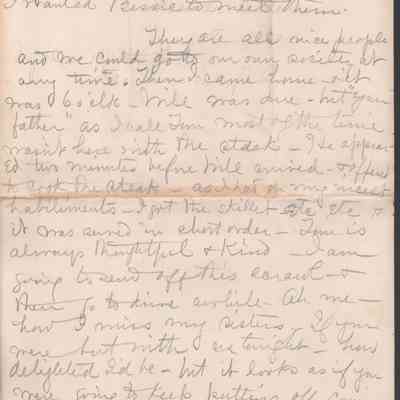 I wanted Bessie to meet them.
They are all nice people
and we could go to our own society at
any time. Then I came home - it
was 6 o'clk - Will was due - but "your
father" as I call Tom most of the time
wasn't here with the steak - He appear-
ed two minutes before Will arrived - & offered
to cook the steak - as I had on my nicest
habiliments - I got the skillet etc etc &
it was served in short order - Tom is
always thoughtful & kind - I am
going to send off this scrawl - &
then go to drive awhile - Ah me -
how I miss my sisters - If you
were but with us tonight - how
delighted I'd be - but it looks as if you
were going to keep putting off